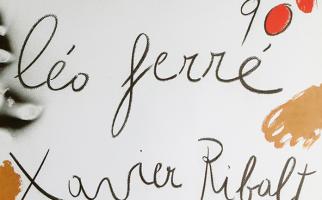 90
léo ferré
Xavier Ribalt